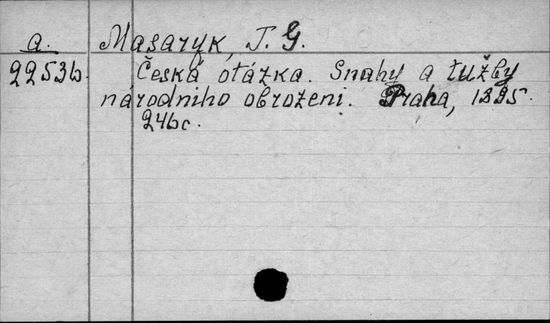 a. Masaryk, T. G.
22536. Česká otázka. Snahy a tužby
národniho obrozeni. Praha, 1895.
246c.